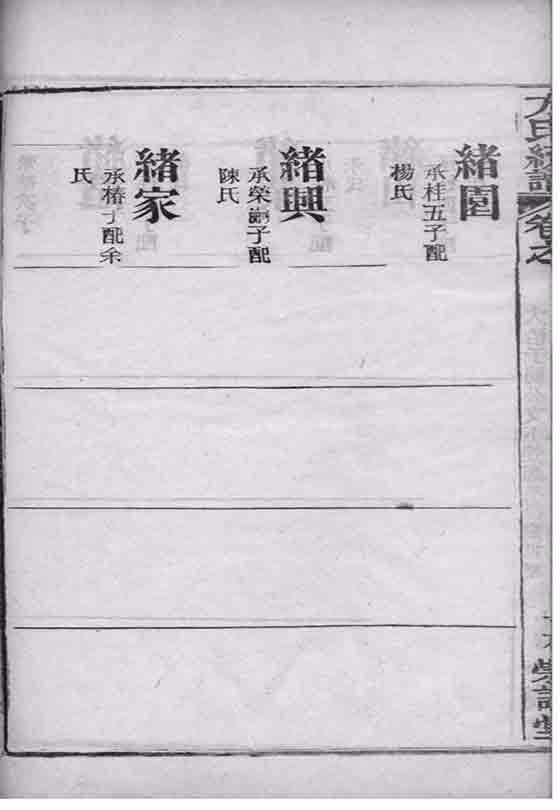 方氏續譜
卷之
緒園
承桂五子配
楊氏
緒興
承榮嗣子配
陳氏
緒家
承椿子配余
氏